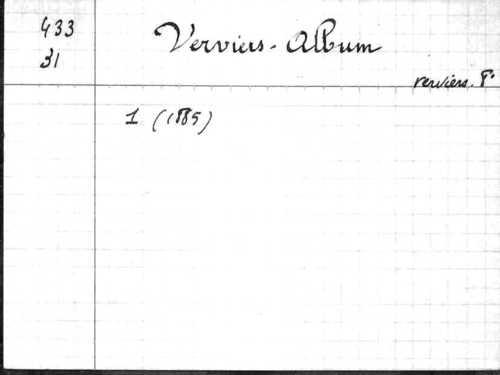 433
31
Verviers-Album
Verviers.
1 (1885)